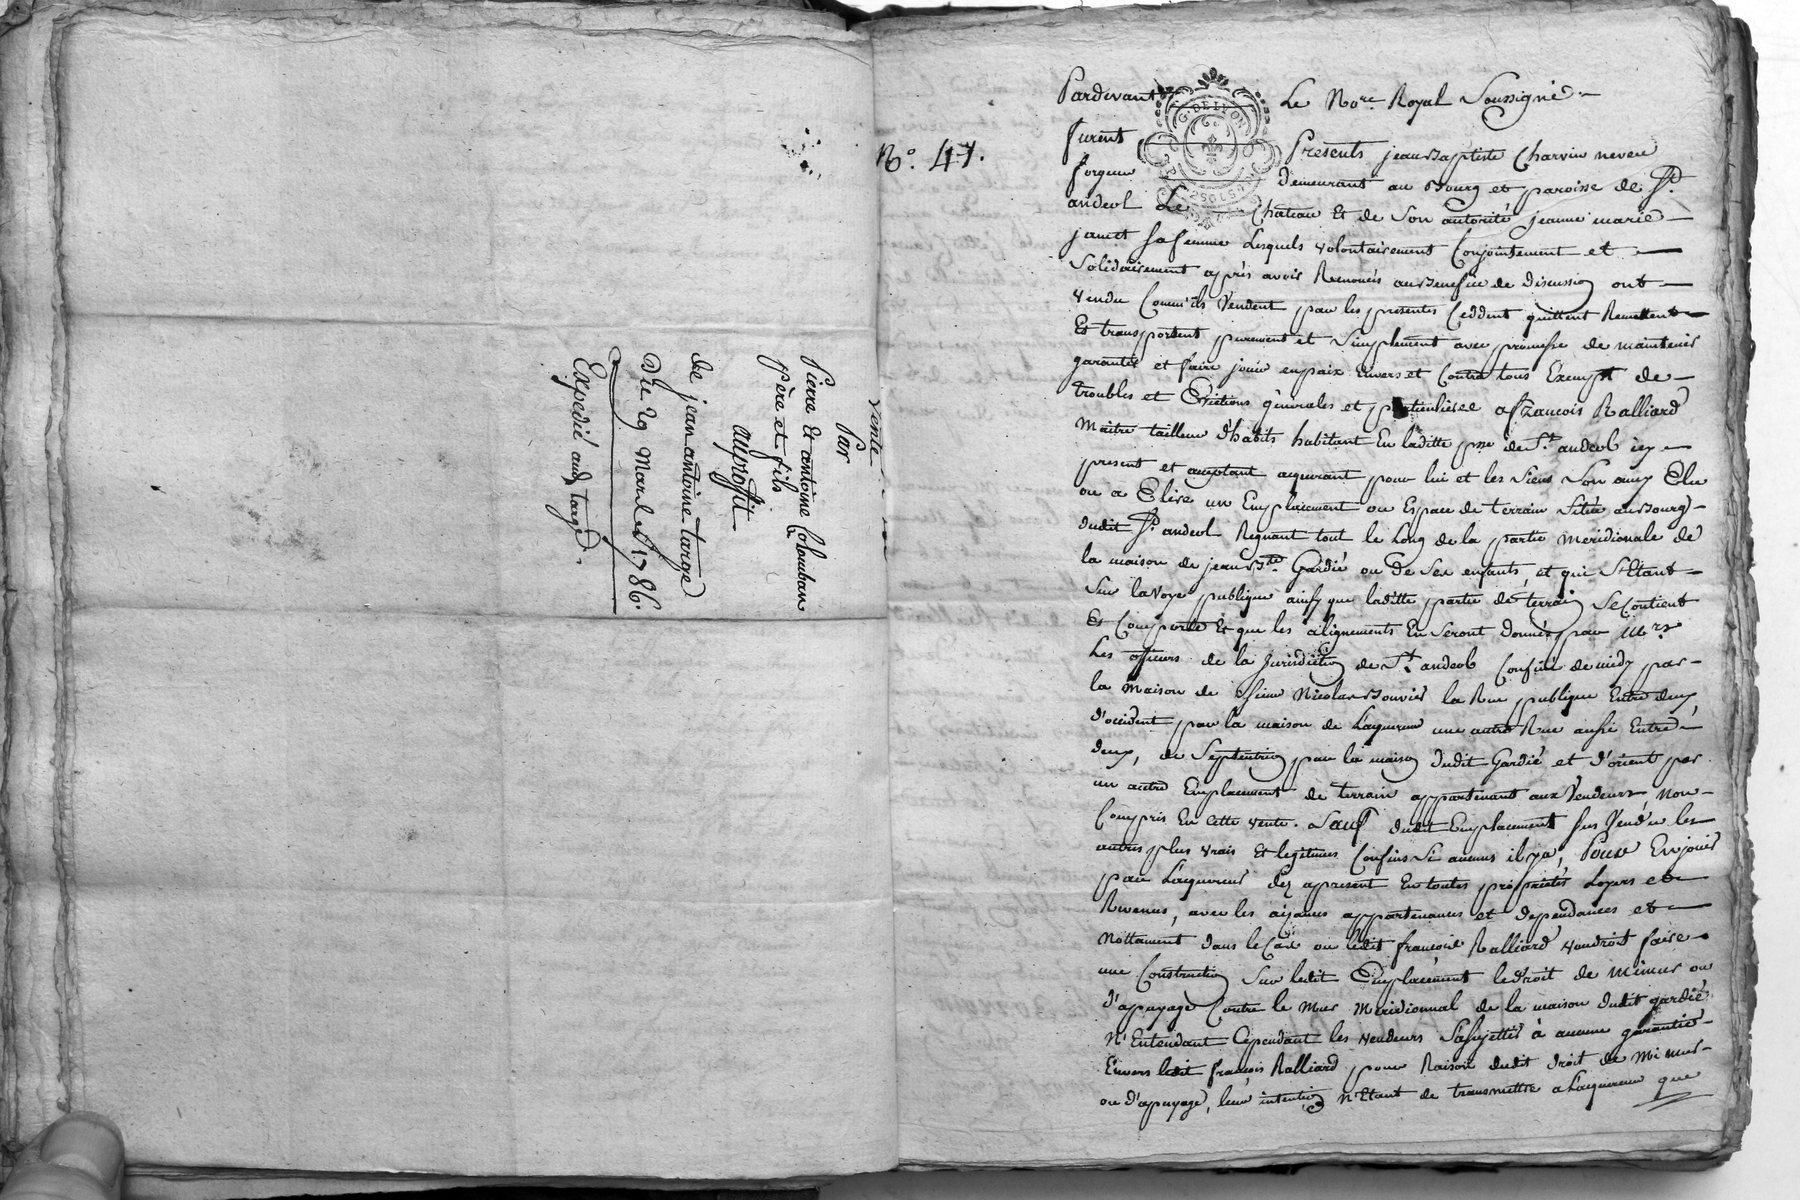 Vente
Par
Pierre Et antoine Colomban
Père et fils
auproffit
de jean antoine targe
Du 29 Mars 1786.
Expedié aud. targe.
N.º 47.
G. DE LYON
Pardevant Le No.re Royal Soussigné
furent Presents jean Baptiste Charvin neveu
forgeur Demeurant au Bourg et paroisse de S.t
andeol Le Chateau Et de Son autorité jeanne marie
janet sa femme Lesquels volontairement Conjointement et
Solidairement après avoir Renoncés au Benefice de discussion ont
Vendu Comm'ils Vendent par les presentes Ceddent quittent Remettent
Et transportent purement et Simplement avec promesse de maintenir
garantir et faire jouir en paix Envers et Contre tous Exempt de
troubles et Evictions génerales et particulieres a francois Ralliard
Maitre tailleur d'habits habitant En laditte p.sse de S.t andeol icy
present et aceptant acquerant pour lui et les Siens Son amy Elu
ou a Elire un Emplacement ou Espace de terrain Situé au Bourg
dudit S.t andeol Regnant tout le Long de la partie meridionale de
la maison de jean B.te Gardié ou de Ses enfants, et qui S'Etant
Sur la voye publique ainsy que laditte partie de terrain Se Contient
Et Comporte Et que les alignements En Seront donnés par M.rs
Les officiers de la jurisdiction de S.t andeol Confiné de midy par
la maison de sieur Nicolas Bouvier la Rue publique Entre deux,
d'occident par la maison de L'acquereur une autre Rue aussi Entre
deux, de Septentrion par la maison dudit Gardié et d'orient par
un autre Emplacement de terrain appartenant aux Vendeurs Non
Compris En Cette vente. Sauf dudit Emplacement sus Vendu les
autres plus vrais Et legitimes Confins Si aucuns il y a, Pour En jouir
par L'acquereur dez apresent En toutes proprietés Loyers et
Revenus, avec les aizances appartenances et dependances et
Nottament dans le Cas ou ledit francois Ralliard voudroit faire
une Construction Sur ledit Emplacement le droit de Mimur ou
d'apuyage Contre le Mur Meridionnal de la maison dudit gardié
N'Entendant Cependant les vendeurs S'assujettir à aucune garantie
Envers ledit francois Ralliard pour Raison dudit droit de Mimur
ou d'apuyage, leur intention N'Etant de transmettre a L'acquereur que